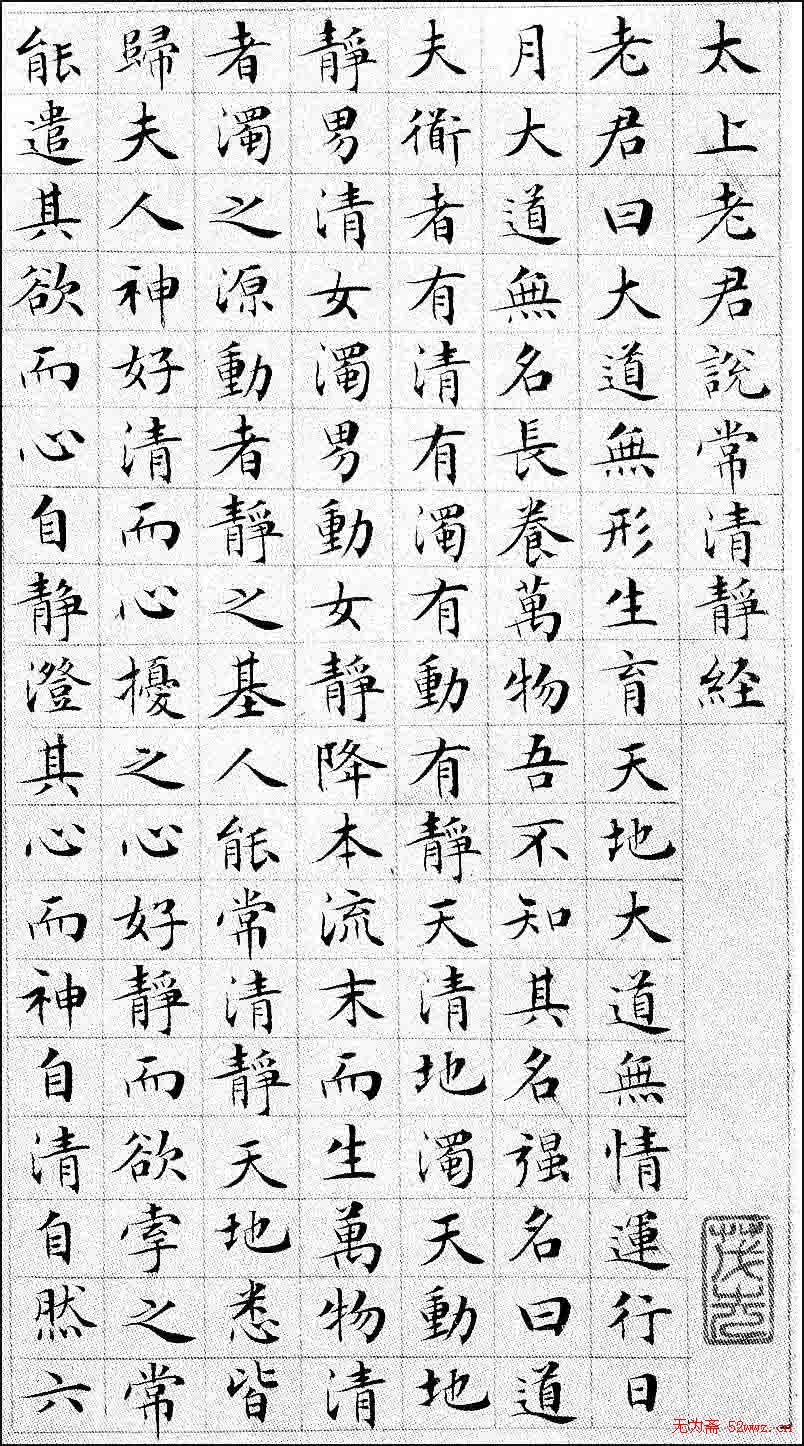 太上老君說常清靜経
老君曰大道無形生育天地大道無情運行日
月大道無名長養萬物吾不知其名强名曰道
夫衜者有清有濁有動有靜天清地濁天動地
靜男清女濁男動女靜降本流末而生萬物清
者濁之源動者靜之基人能常清靜天地悉皆
歸夫人神好清而心擾之心好靜而欲牽之常
能遣其欲而心自静澄其心而神自清自然六
无为斋 52wwz.cn